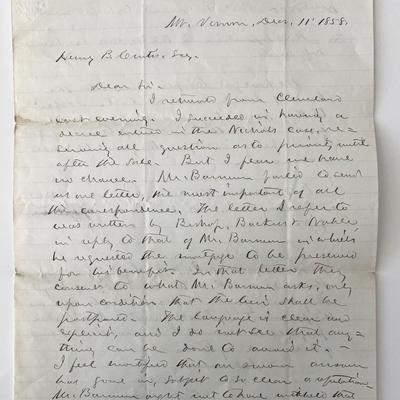 Mt. Vernon, Dec. 11' 1858.
Henry B. Curtis, Esq.
Dear Sir.
I returned from Cleveland
last evening. I succeeded in having a
decree entered in the Nichols case, re-
serving all question as to priority until
after the sale. But I fear we have
no chance. Mr. Barnum failed to send
us one letter, the most important of all
the correspondence. The letter I refer to
was written by Bishop, Backus & Noble
in reply to that of Mr. Barnum in which
he requested the mortgage to be preserved
for his benefit. In that letter they
consent to what Mr. Barnum asks, only
upon condition that the lien shall be
postponed. The language is clear and
explicit, and I do not see that any-
thing can be done to avoid it. -
I feel mortified that our sworn answer
has gone in, subject to so clear a refutation.
Mr. Barnum ought not to have withheld that